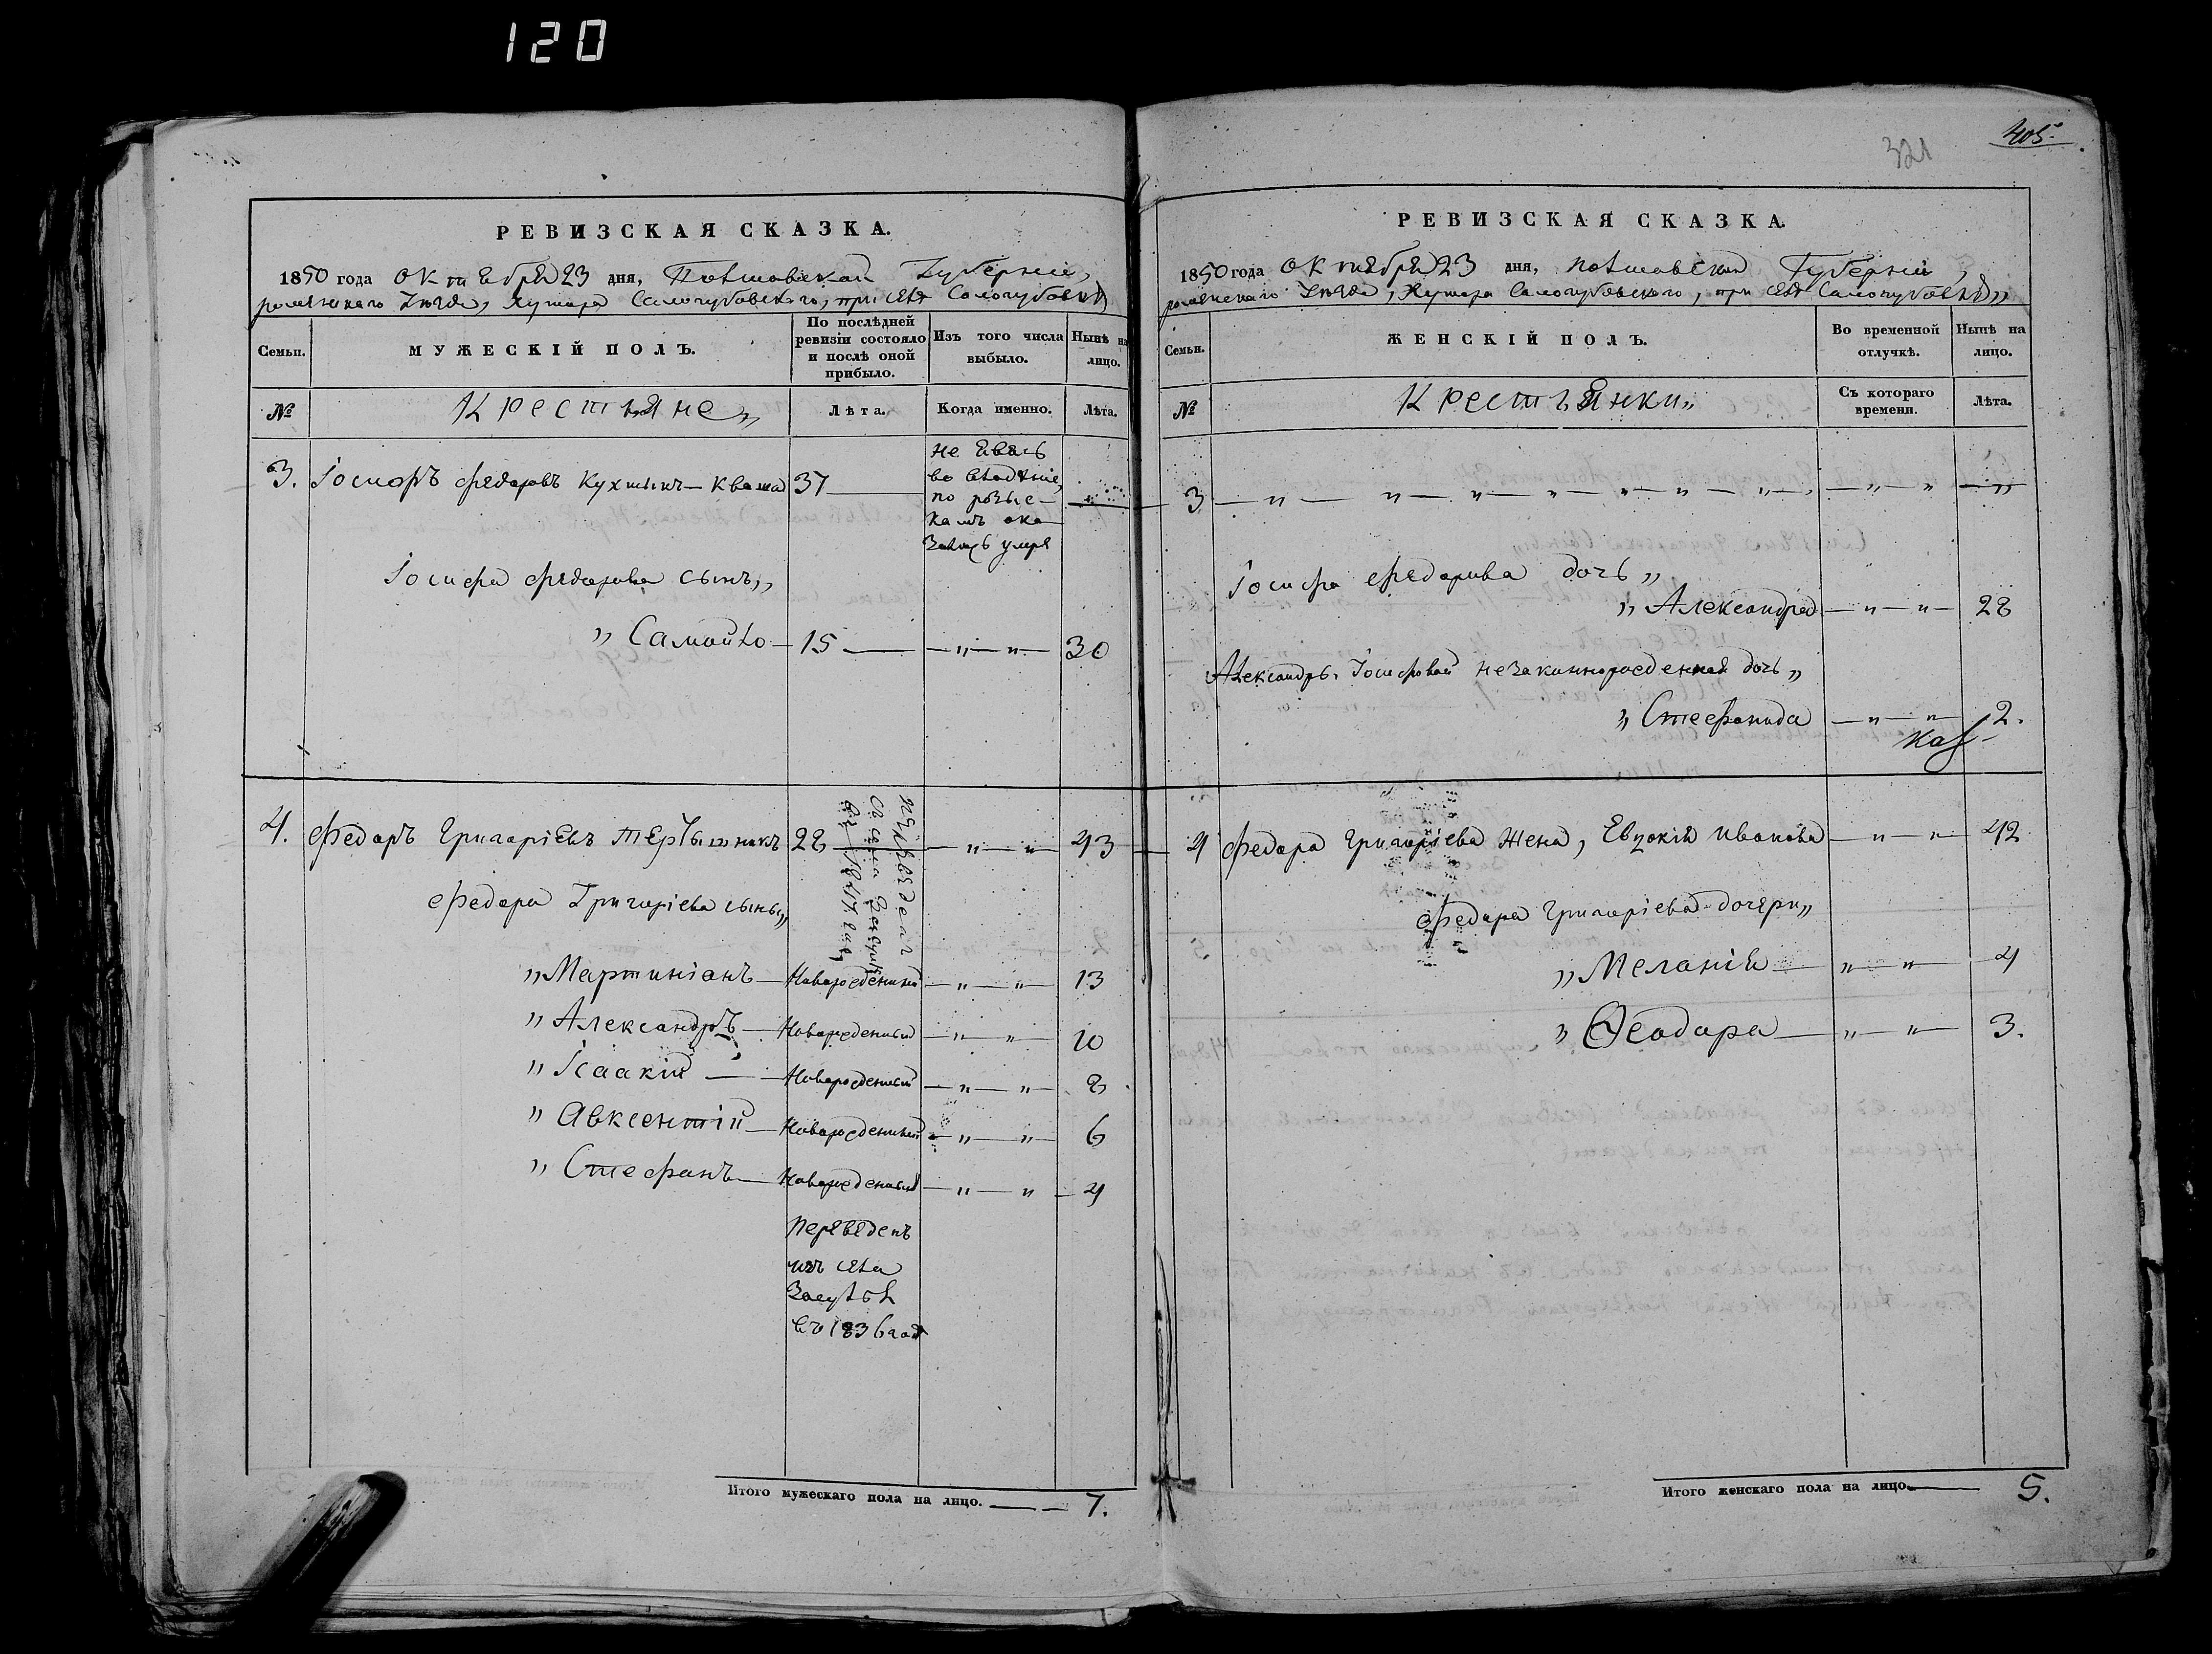 120
РЕВИЗСКАЯ СКАЗКА.
1850 года октября 23 дня, Полтавской Губерніи,
роменскаго уезда, хутора Сологубовскаго, при селе Сологубовке
Семьи.
МУЖЕСКІЙ ПОЛЪ.
По послѣдней ревизіи состояло и послѣ оной прибыло.
Изъ того числа выбыло.
Нынѣ на лицо.
№
Крестьяне,,
Лѣта.
Когда именно.
Лѣта.
3. Іосифъ Федоровъ Кухтинъ-Кваша 37
по розыс-
камъ ока-
Іосифа Федорова сынъ,,
,, Самойло — 15 — „ — „ — 30
4. Федоръ Григоріевъ 28 — „ — „ — 43
переведенъ
съ села
въ 1847 году
Федора Григоріева сыны,,
,, Мартиніанъ — Новорожденный — „ — „ — 13
,, Александръ — Новорожденный — „ — „ — 10
,, Ісаакій — Новорожденный — „ — „ — 8
,, Авксентій — Новорожденный — „ — „ — 6
,, Стефанъ — Новорожденный — „ — „ — 4
Переведенъ
изъ села
въ 1836 годе
Итого мужескаго пола на лицо. — 7.
321
405.
РЕВИЗСКАЯ СКАЗКА.
1850 года октября 23 дня, полтавской Губерніи,
роменскаго уезда, хутора Сологубовскаго, при селе Сологубовке,,
Семьи.
ЖЕНСКІЙ ПОЛЪ.
Во временной отлучкѣ.
Нынѣ на лицо.
№
Крестьянки,,
Съ котораго времени.
Лѣта.
3 — „ — „ — „ — „ — „ — „ — „ — „ — „ — „
Іосифа Федорова дочь,,
,, Александра — „ — „ — 28
Александры Іосифовой незаконнорожденная дочь,,
,, Стефанида — „ — „ — 2.
4 Федора Григоріева жена, Евдокія Иванова — „ — „ — 42
Федора Григоріева дочери,,
,, Меланія — „ — „ — 4
,, Ѳеодора — „ — „ — 3.
Итого женскаго пола на лицо. — 5.